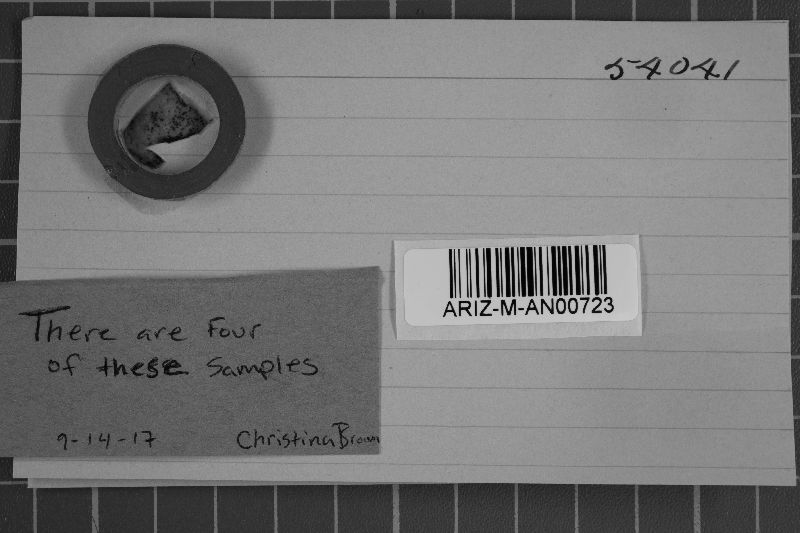 54041
ARIZ-M-AN00723
There are Four
of these Samples
9-14-17 Christina Brown